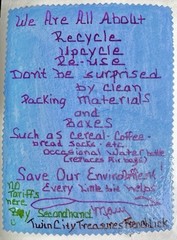 We Are All About
Recycle
Upcycle
Re-use
Don't be surprised
by clean
Packing Materials
and
Boxes
Such as cereal-Coffee-
bread socks-etc.
Occasional Water bottle
(replaces Air bags)
Save Our Environment
Every little bit helps
NO
Tariffs
here
Buy Secondhand
TwinCityTreasuresFrenchLick